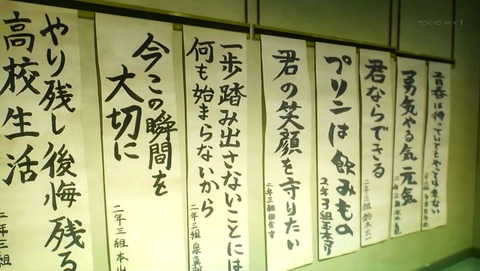 TOKYO MX 1
青春は待っていてもやっては来ない
勇気やる気元気
君ならできる
二年三組 鈴木
プリンは飲みもの
君の笑顔を守りたい
二年三組 田宮
一歩踏み出さないことには
何も始まらないから
二年三組 泉真
今この瞬間を
大切に
二年三組 本山
やり残し後悔残る
高校生活
二年三組